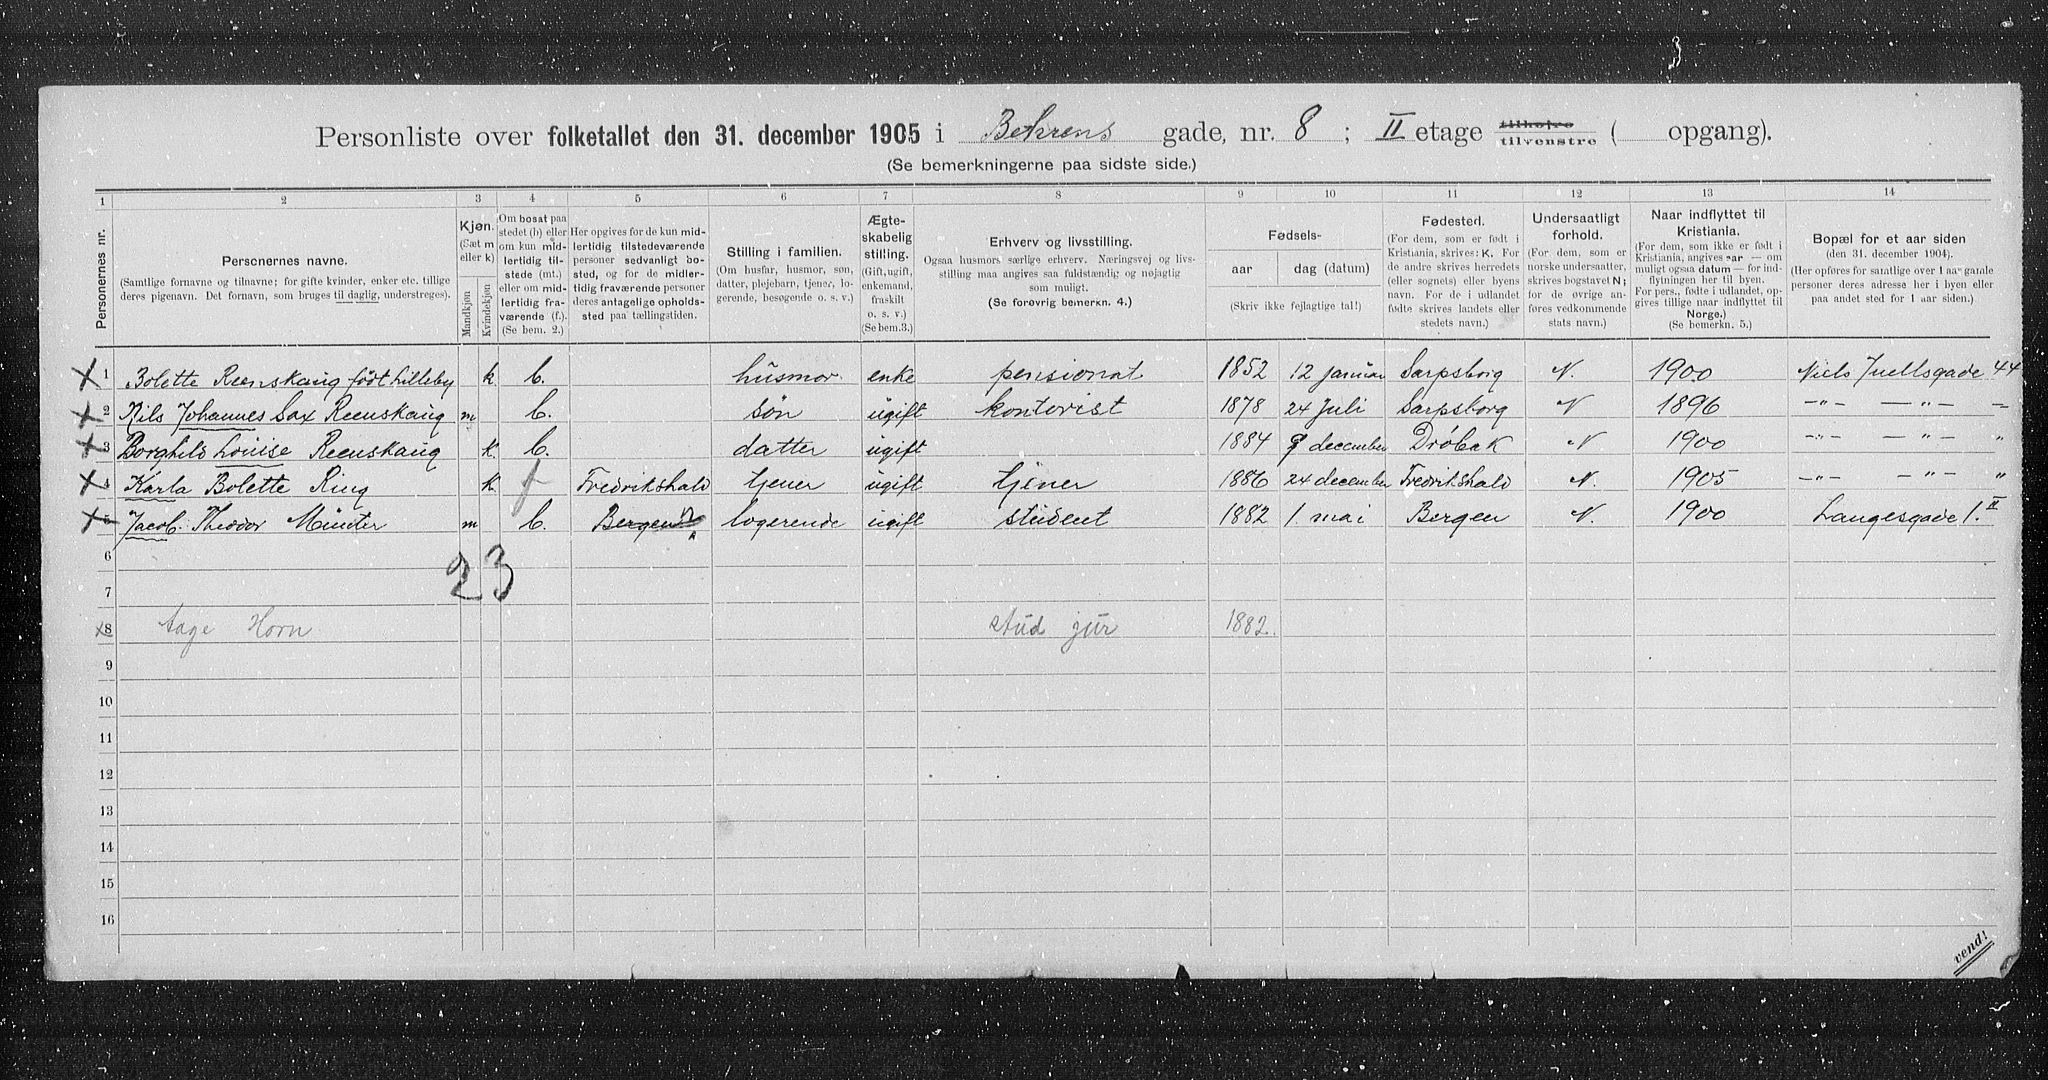 Personliste over folketallet den 31. december 1905 i Behrens gade, nr. 8 ; II etage tilhøjre tilvenstre ( opgang).
(Se bemerkningerne paa sidste side.)
1 2 3 4 5 6 7 8 9 10 11 12 13 14
Personernes nr.
Personernes navne.
(Samtlige fornavne og tilnavne; for gifte kvinder, enker etc. tillige
deres pigenavn. Det fornavn, som bruges til daglig, understreges).
Kjøn.
(Sæt m
eller k)
Mandkjøn
Kvindekjøn
Om bosat paa
stedet (b) eller
om kun mid-
lertidig til-
stede (mt.)
eller om mid-
lertidig fra-
værende (f.).
(Se bem. 2.)
Her opgives for de kun mid-
lertidig tilstedeværende
personer sedvanligt bo-
sted, og for de midler-
tidig fraværende personer
deres antagelige opholds-
sted paa tællingstiden.
Stilling i familien.
(Om husfar, husmor, søn,
datter, plejebarn, tjener, lo-
gerende, besøgende o. s. v.)
Ægte-
skabelig
stilling.
(Gift, ugift,
enkemand,
fraskilt
o. s. v.)
(Se bem.3.)
Erhverv og livsstilling.
Ogsaa husmors særlige erhverv. Næringsvej og livs-
stilling maa angives saa fuldstændig og nøjagtig
som muligt.
(Se forøvrig bemerkn. 4.)
Fødsels-
aar dag (datum)
(Skriv ikke fejlagtige tal!)
Fødested.
(For dem, som er født i
Kristiania, skrives: K. For
de andre skrives herredets
(eller sognets) eller byens
navn. For de i udlandet
fødte skrives landets eller
stedets navn.)
Undersaatligt
forhold.
(For dem, som er
norske undersaatter,
skrives bogstavet N;
for de øvrige an-
føres vedkommende
stats navn.)
Naar indflyttet til
Kristiania.
(For dem, som ikke er født i
Kristiania, angives aar — om
muligt ogsaa datum — for ind-
flytningen her til byen.
For pers., fødte i udlandet, op-
gives tillige naar indflyttet til
Norge.)
(Se bemerkn. 5.)
Bopæl for et aar siden
(den 31. december 1904).
(Her opføres for samtlige over 1 aar gamle
personer deres adresse her i byen eller
paa andet sted for 1 aar siden.)
X 1 Bolette Reenskaug født Lilleby k b. husmor enke pensionat 1852 12 januar Sarpsborg N. 1900 Niels Juellsgade 44
X 2 Nils Johannes Sax Reenskaug m b. søn ugift kontorist 1878 24 Juli Sarpsborg N 1896 —"— —"— –
X 3 Borghild Louise Reenskaug k b. datter ugift 1884 9 december Drøbak N 1900 —"— —"— "
X 4 Karla Bolette Ring k f Fredrikshald tjener ugift tjener 1886 24 december Fredrikshald N. 1905 —"— —"— "
X 5 Jacob Theodor Münter m b. Bergen logerende ugift student 1882 1. mai Bergen N. 1900 Langesgade 1. II
6
23
7
x8 Aage Horn stud jur 1882.
9
10
11
12
13
14
15
16
vend!